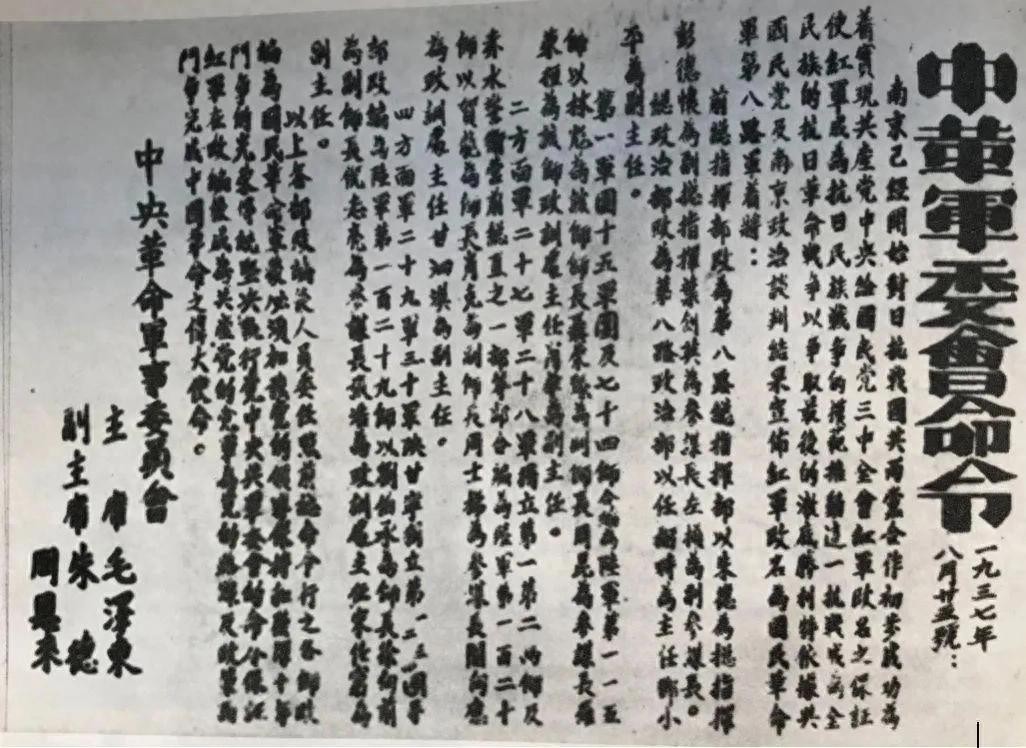 中革軍委會命令
一九三七年
八月廿五號：
南京已經開始對日抗戰國共兩黨合作初步成功為
着實現共產党中央給國民党三中全會紅軍改名之保証
使紅軍成為抗日民族戰爭的模範推動这一抗戰成為全
民族的抗日革命战爭以爭取最後的澈底勝利特依據共
國民党及南京政治談判結果宣佈紅軍改名為國民革命
軍第八路軍着將：
前總指揮部改為第八路總指揮部以朱德為總指揮
彭德懷為副總指揮葉剑英為参謀長左權為副参謀長。
總政治部改為第八路政治部以任弼時為主任鄧小
平為副主任。
第一軍團十五軍團及七十四師合編為陸軍第一一五
師以林彪為該師師長聶荣臻為副師長周昆為参謀長羅
荣桓為該師政訓處主任蕭華為副主任。
二方面軍二十七軍二十八軍獨立第一第二兩師及
赤水警衛營前總直之一部等部合編為陸軍第一百二十
師以賀龍為師長肖克為副師長周士梯為参謀長関向應
為政訓處主任甘泗淇為副主任。
四方面軍二十九軍三十軍陝甘寧獨立第一二三四團等
部改編為陸軍第一百二十九師以劉伯承為師長徐向前
為副師長倪志亮為参謀長張浩為政訓處主任宋任窮為
副主任。
以上各部改編後人員委任照前總命令行之各師改
編為國民革命軍後必須加強党的領導保持和發揮十年
鬥爭的光荣傳統坚决執行党中央與軍委會的命令保証
紅軍在改編後成為共產党的党軍為党的路線及政策而
鬥爭完成中國革命之偉大使命。
中央革命軍事委員會
主席 毛澤東
副主席 朱德
周恩來